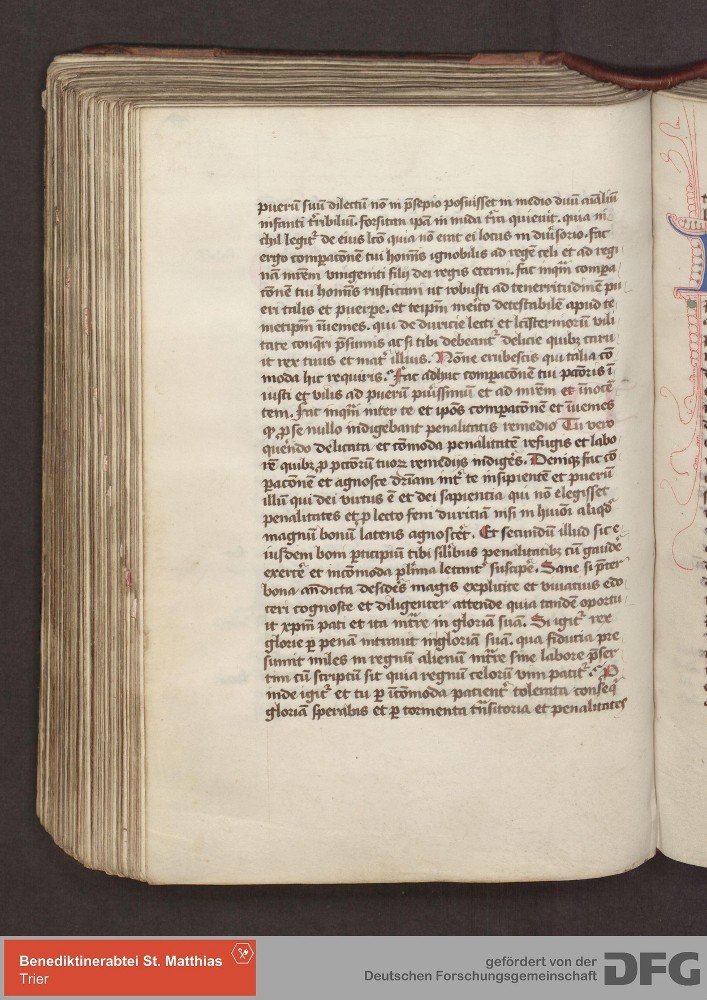 puerū suū dilectū nō in p̄sepio posuisset in medio duū aīaliū
infanti t̄ribiliū. forsitan ip̄a in nuda t̄ra quieuit. quia ni
chil legit᷑ de eius lc̄o quia nō erat ei locus in diu̾sorio. fac
ergo comparatōnē tui homīs ignobilis ad regē celi et ad regi
nā mr̄em vnigeniti filij dei regis eterni. fac inq̄m compa
tōnē tui homīs rusticam ut robusti ad tenerritudinē pu
eri talis et puerpe. et teip̄m merito detestabilē apud te
metip̄m īuenies. qui de duricie lecti et lc̄isterniorū vili
tate conq̄ri p̄sumis ac si tibi debeant᷑ delicie quibꝫ caru
it rex tuus et mat᷑ illius. Nōne erubescis qui talia cō
moda hic requiris. Fac adhuc comparatōnē tui pctōris ī
iusti et vilis ad puerū puīssimū et ad mr̄em et īnocē
tem. Fac inq̄m inter te et ip̄os comparatōnē et īuenies
qꝫ p̱ se nullo indigebant penalitatis remedio Tu vero
querēdo delicata et cōmoda penalitatē refugis et labo
rē quibꝫ p̱ pctōrū tuoꝝ remedijs indigēs. Deniqꝫ fac cō
paratōnē et agnosce dr̄iam int᷑ te insipientē et puerū
illū qui dei virtus ē et dei sapientia qui nō elegisset
penalitates et p̱ lecto feni duriciā nisi in huiōi aliqd̾
magnū bonū latens agnoscēt᷑. Et secundū illud sic e
iusdem boni p̱ticipiū tibi silībus penalitatibꝫ cū gaudē
exercē et incōmoda p̱lima letant᷑ suscipē. Sane si p̄ter
bona andicta desidēs magis explicite et viuatius edo
ceri cognosce et diligenter attende quia tandē oportu
it xp̄m pati et ita intr̄e in gloriā suā. Si igit᷑ rex
glorie p̱ penā intrauit in gloriā suā. qua fiducia pre
sumit miles in regnū alienū intr̄e sine labore p̄ser
tim cū scriptū sit quia regnū celorū vim patit᷑. P̱
inde igit᷑ et tu p̱ īcōmoda pacient᷑ tolerata conseq̄
gloriā sperabis et p̱ tormenta trāsitoria et penalitates
Benediktinerabtei St. Matthias
Trier
gefördert von der
Deutschen Forschungsgemeinschaft
DFG